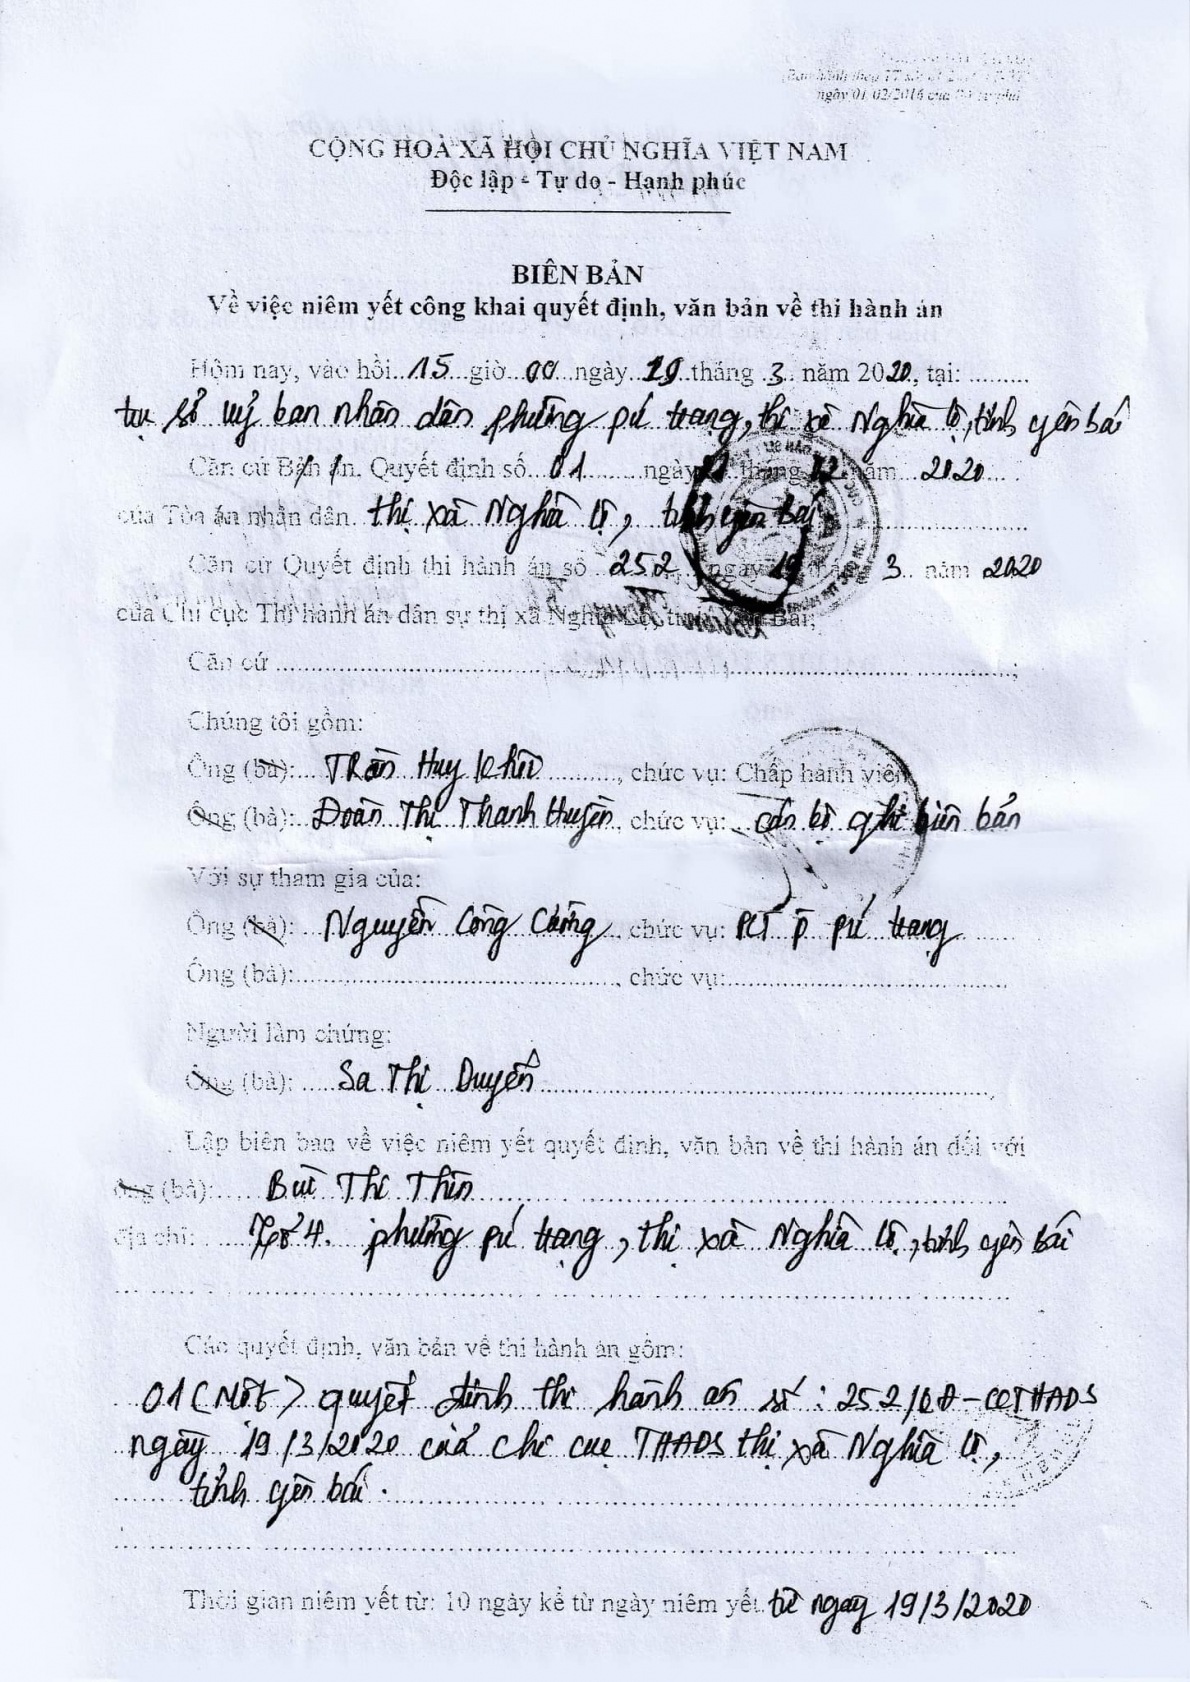 ngày 01/02/2016 của Bộ Tư pháp
CỘNG HOÀ XÃ HỘI CHỦ NGHĨA VIỆT NAM
Độc lập - Tự do - Hạnh phúc
BIÊN BẢN
Về việc niêm yết công khai quyết định, văn bản về thi hành án
Hôm nay, vào hồi 15 giờ 00 ngày 19 tháng 3 năm 2020, tại: .........
trụ sở uỷ ban nhân dân phường pú trạng, thị xã Nghĩa lộ, tỉnh yên bái
Căn cứ Bản án, Quyết định số 01 ngày tháng 02 năm 2020
của Tòa án nhân dân thị xã Nghĩa lộ, tỉnh yên Bái
Căn cứ Quyết định thi hành án số 252 ngày 19 tháng 3 năm 2020
của Chi cục Thi hành án dân sự thị xã Nghĩa Lộ, tỉnh Yên Bái;
Căn cứ ..........;
Chúng tôi gồm:
Ông (bà): Trần Huy Khải, chức vụ: Chấp hành viên
Ông (bà): Đoàn Thị Thanh Huyền, chức vụ: cán bộ ghi biên bản
Với sự tham gia của:
Ông (bà): Nguyễn Công Cường, chức vụ: PCT P pú trạng
Ông (bà):.........., chức vụ:..........
Người làm chứng:
Ông (bà): Sa Thị Duyến
Lập biên bản về việc niêm yết quyết định, văn bản về thi hành án đối với
ông (bà): Bùi Thị Thìn
địa chỉ: Tổ 4. phường pú trạng, thị xã Nghĩa lộ, tỉnh yên bái
Các quyết định, văn bản về thi hành án gồm:
01 (Một) quyết định thi hành án số: 252/QĐ-CCTHADS
ngày 19/3/2020 của chi cục THADS thị xã Nghĩa lộ,
tỉnh yên bái.
Thời gian niêm yết từ: 10 ngày kể từ ngày niêm yết từ ngày 19/3/2020